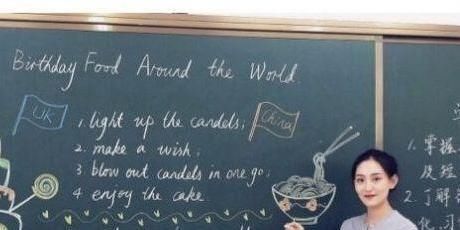 Birthday Food Around the World.
UK
1. light up the candels;
China
2. make a wish;
3 blow out candels in one go;
4 enjoy the cake
1. 掌握
及短
2. 了解
化,习